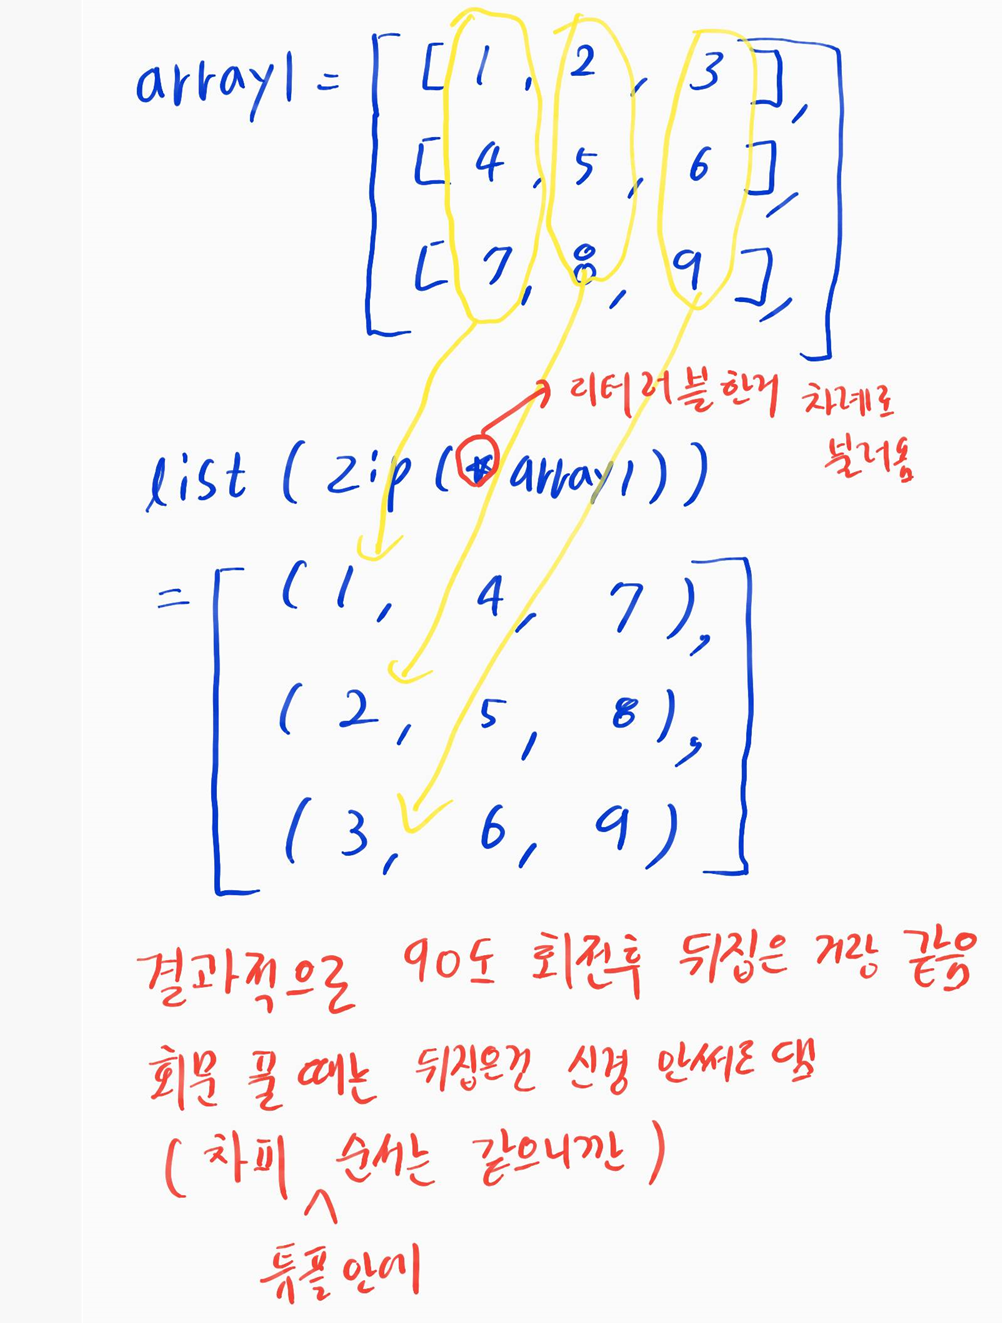 array1 = [ [ 1 , 2 , 3 ],
[ 4 , 5 , 6 ],
[ 7 , 8 , 9 ], ]
리터러블한거 차례로
불러옴
list ( zip ( * array1 ) )
= [ ( 1 , 4 , 7 ),
( 2 , 5 , 8 ),
( 3 , 6 , 9 ) ]
결과적으로 90도 회전후 뒤집은 거랑 같음
회문 풀 때는 뒤집은건 신경 안써도 댐
( 차피 ^ 순서는 같으니깐 )
튜플 안에